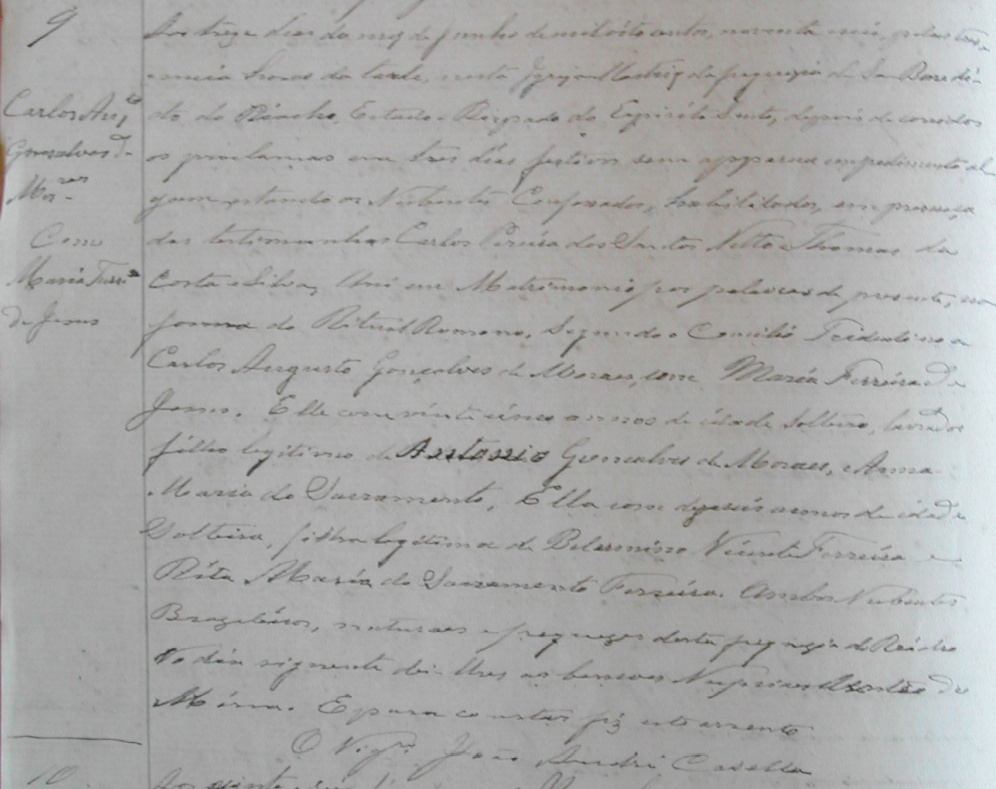 9
Aos treze dias do mez de junho de mil oito centos, noventa seis, pelas tres e
meia horas da tarde, nesta Igreja Matriz da freguezia de São Benedi-
to do Riacho, Estado e Bispado do Espirito Santo, depois de corridos
os proclamas em tres dias festivos sem apparecer impedimento al-
gum estando os Nubentes Confessados, habilitados, em presença
das testimunhas Carlos Pereira dos Santos Netto e Thomas da
Costa e Silva, Uni em Matrimonio por palavras de presente, na
forma do Ritual Romano, Segundo o Concilio Tridentino a
Carlos Augusto Gonçalves de Moraes, com Maria Ferreira de
Jesus. Elle com vinte cinco annos de idade solteiro, lavrador
filho legitimo de Antonio Gonçalves de Moraes, e Anna
Maria do Sacramento, Ella com dezeseis annos de idade
Solteira, filha legitima de Belarmino Vicente Ferreira e
Rita Maria do Sacramento Ferreira. Ambos Nubentes
Brazileiros, naturaes e freguezes desta freguezia do Riacho
No dia siguente dei-lhes as bençoes Nupciaes dentro da
Missa. E para constar fiz este assento.
O Vigrº João André Casella
Carlos Augto
Gonçalves de
Moraes
Com
Maria Ferra
de Jesus
10